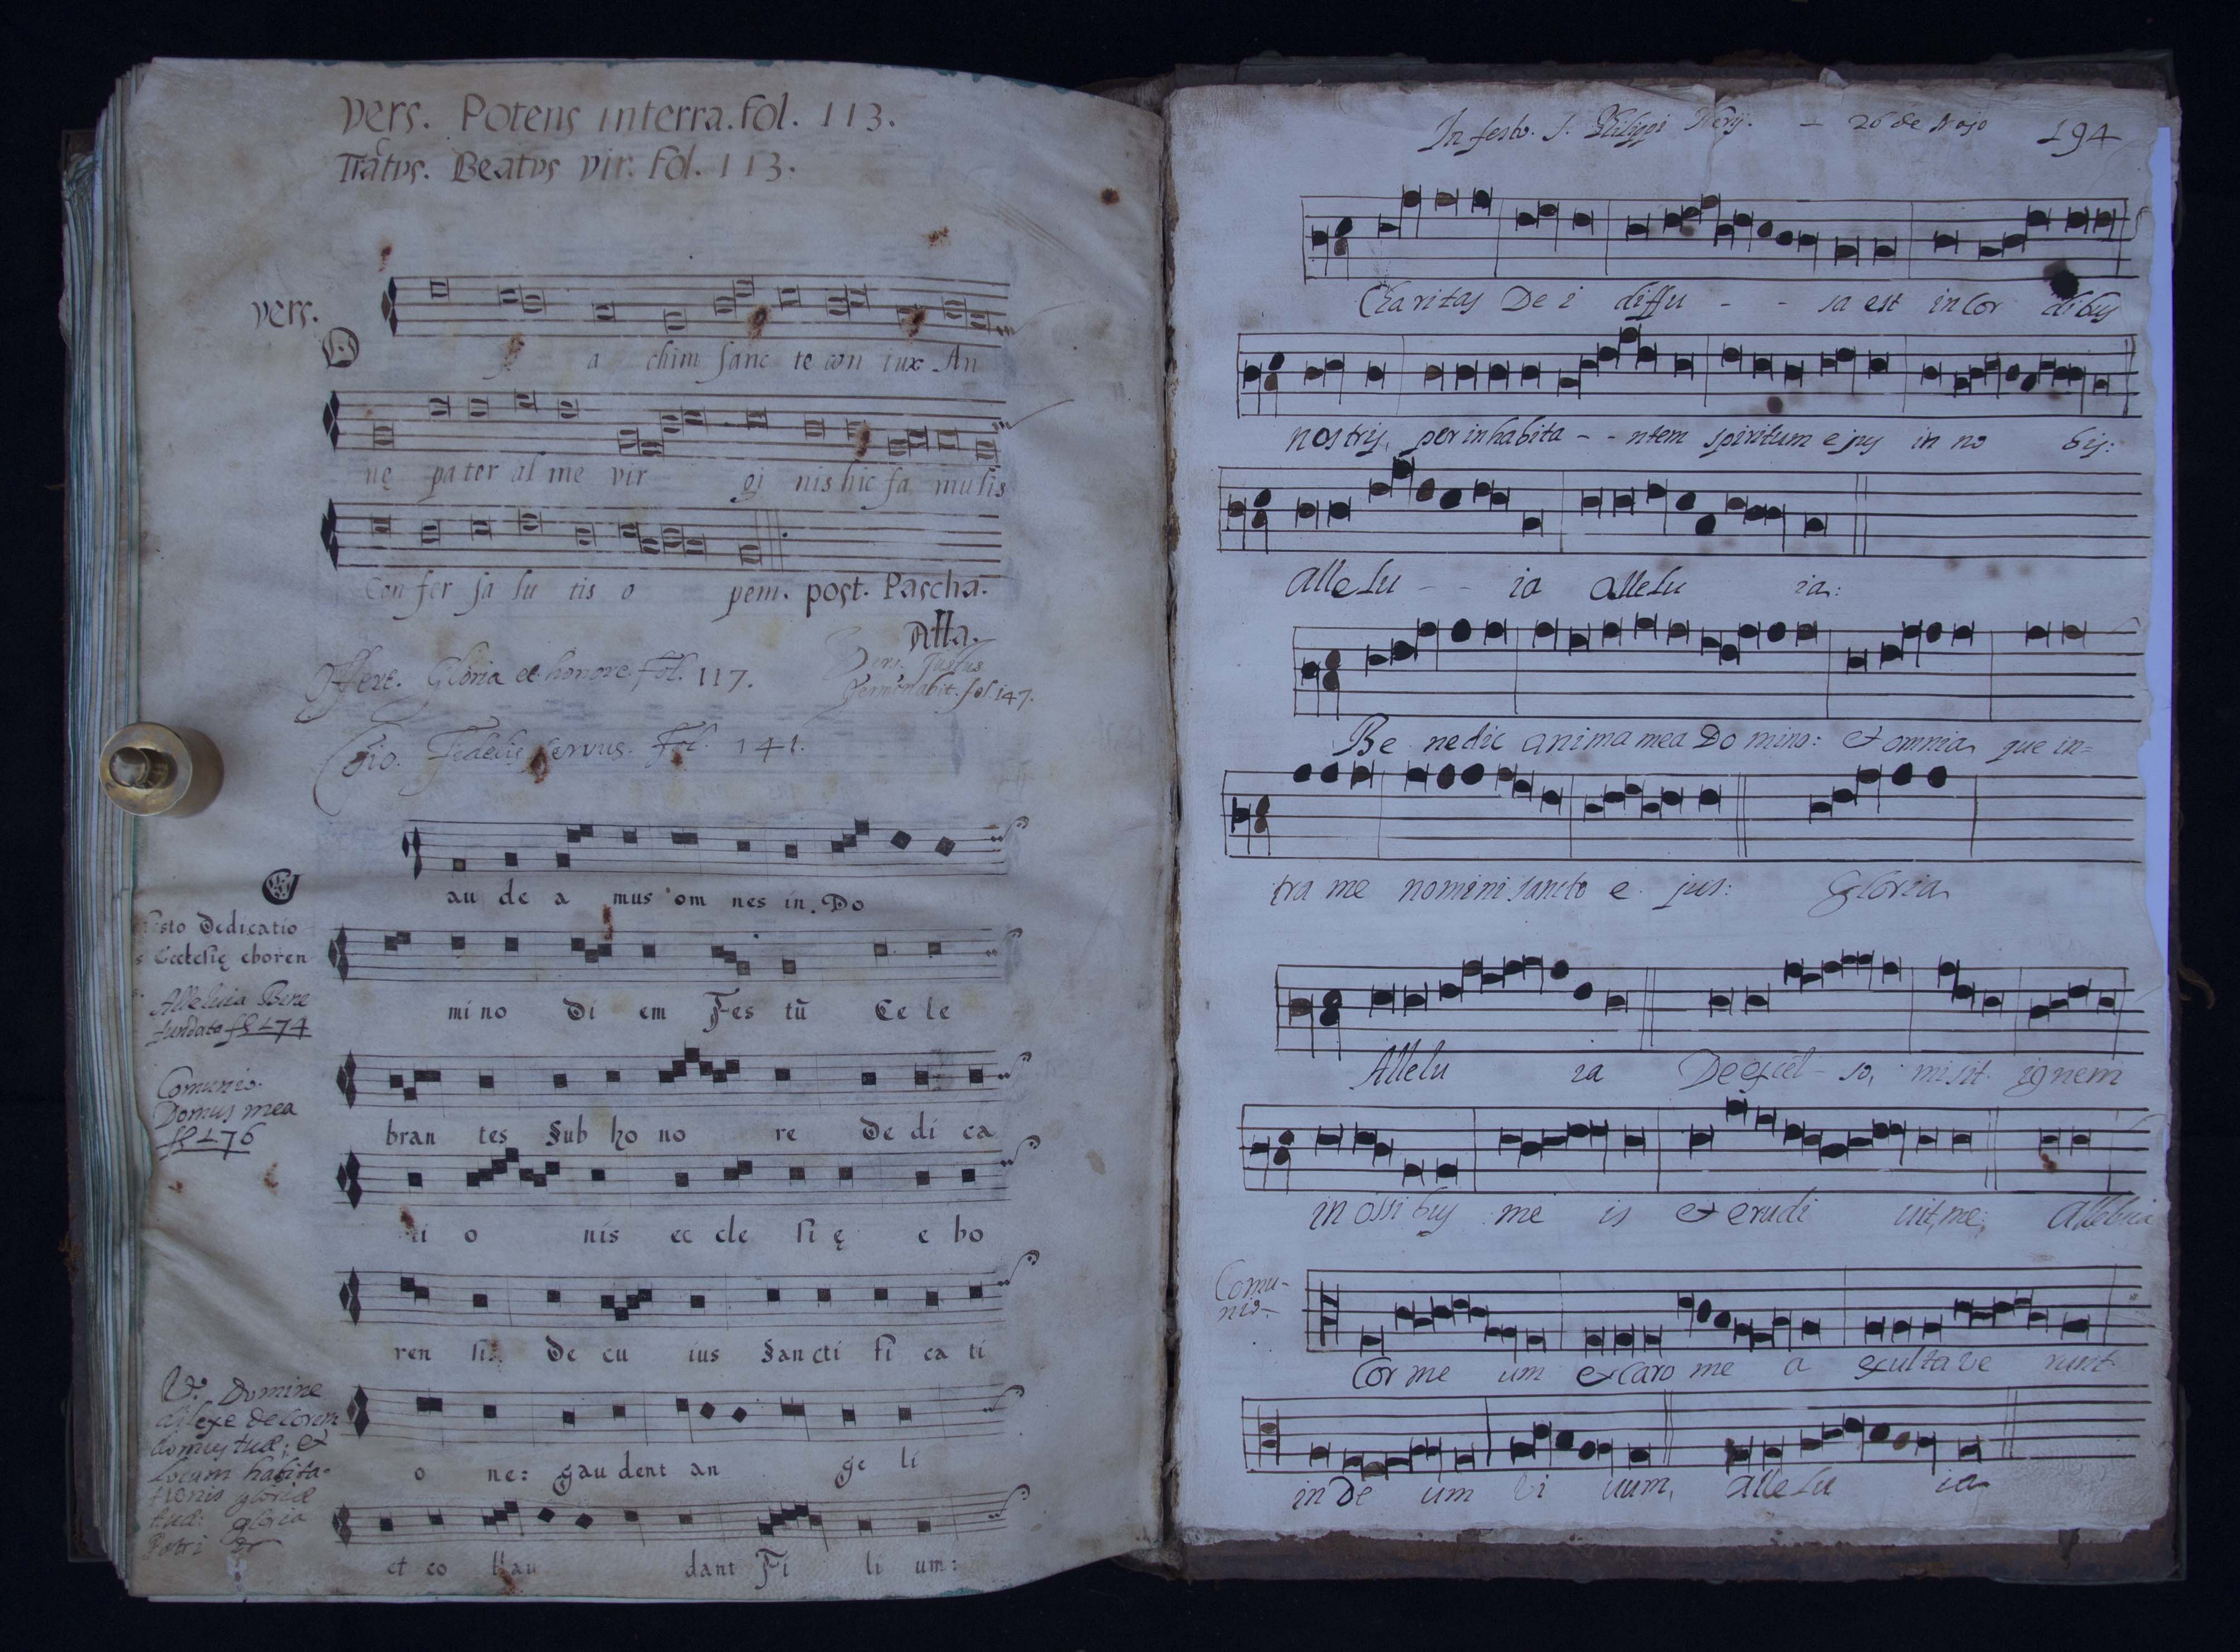 vers. Potens interra. fol. 113.
Tractvs. Beatvs vir. fol. 113.
vers.
a chim sanc te con iux An
nę pa ter al me vir gi nis hic fa mu lis
Con fer sa lu tis o pem. post. Pascha.
Alla.
Offert. Gloria et honore. fol. 117.
Vers. Justus
Germinabit. fol. 147.
Coio. Fidelis servus. fol. 141.
G au de a mus om nes in. Do
festo Dedicatio
s Ecclesię eboren
s.
mi no di em Fes tũ Ce le
Alleluia Bene
fundata fl 174
Comunio.
Domus mea
fl 176
bran tes Sub ho no re De di ca
ti o nis ec cle si ę e bo
ren sis. De cu ius Sancti fi ca ti
V. Domine
dilexe decorem
domus tuæ; et
locum habita-
tionis gloriæ
tuæ: gloria
Patri &r
o ne: gau dent an ge li
et co ll au dant Fi li um:
In festo. S. Philippi Nerij. – 26 de Mojo 194
Charitas De i diffu - - sa est in Cor dibus
nostris, per inhabita - - ntem spiritum ejus in no bis:
alle lu - - ia alle lu ia:
Be nedic anima mea Do mino: et omnia que in=
tra me nomini sancto e jus: Gloria
Allelu ia De excel - so, misit ignem
in ossibus me is et erudi uit, me; Alleluia
Comu-
nio-
Cor me um et Caro me a exulta ve runt
in De um vi uum, alle lu ia